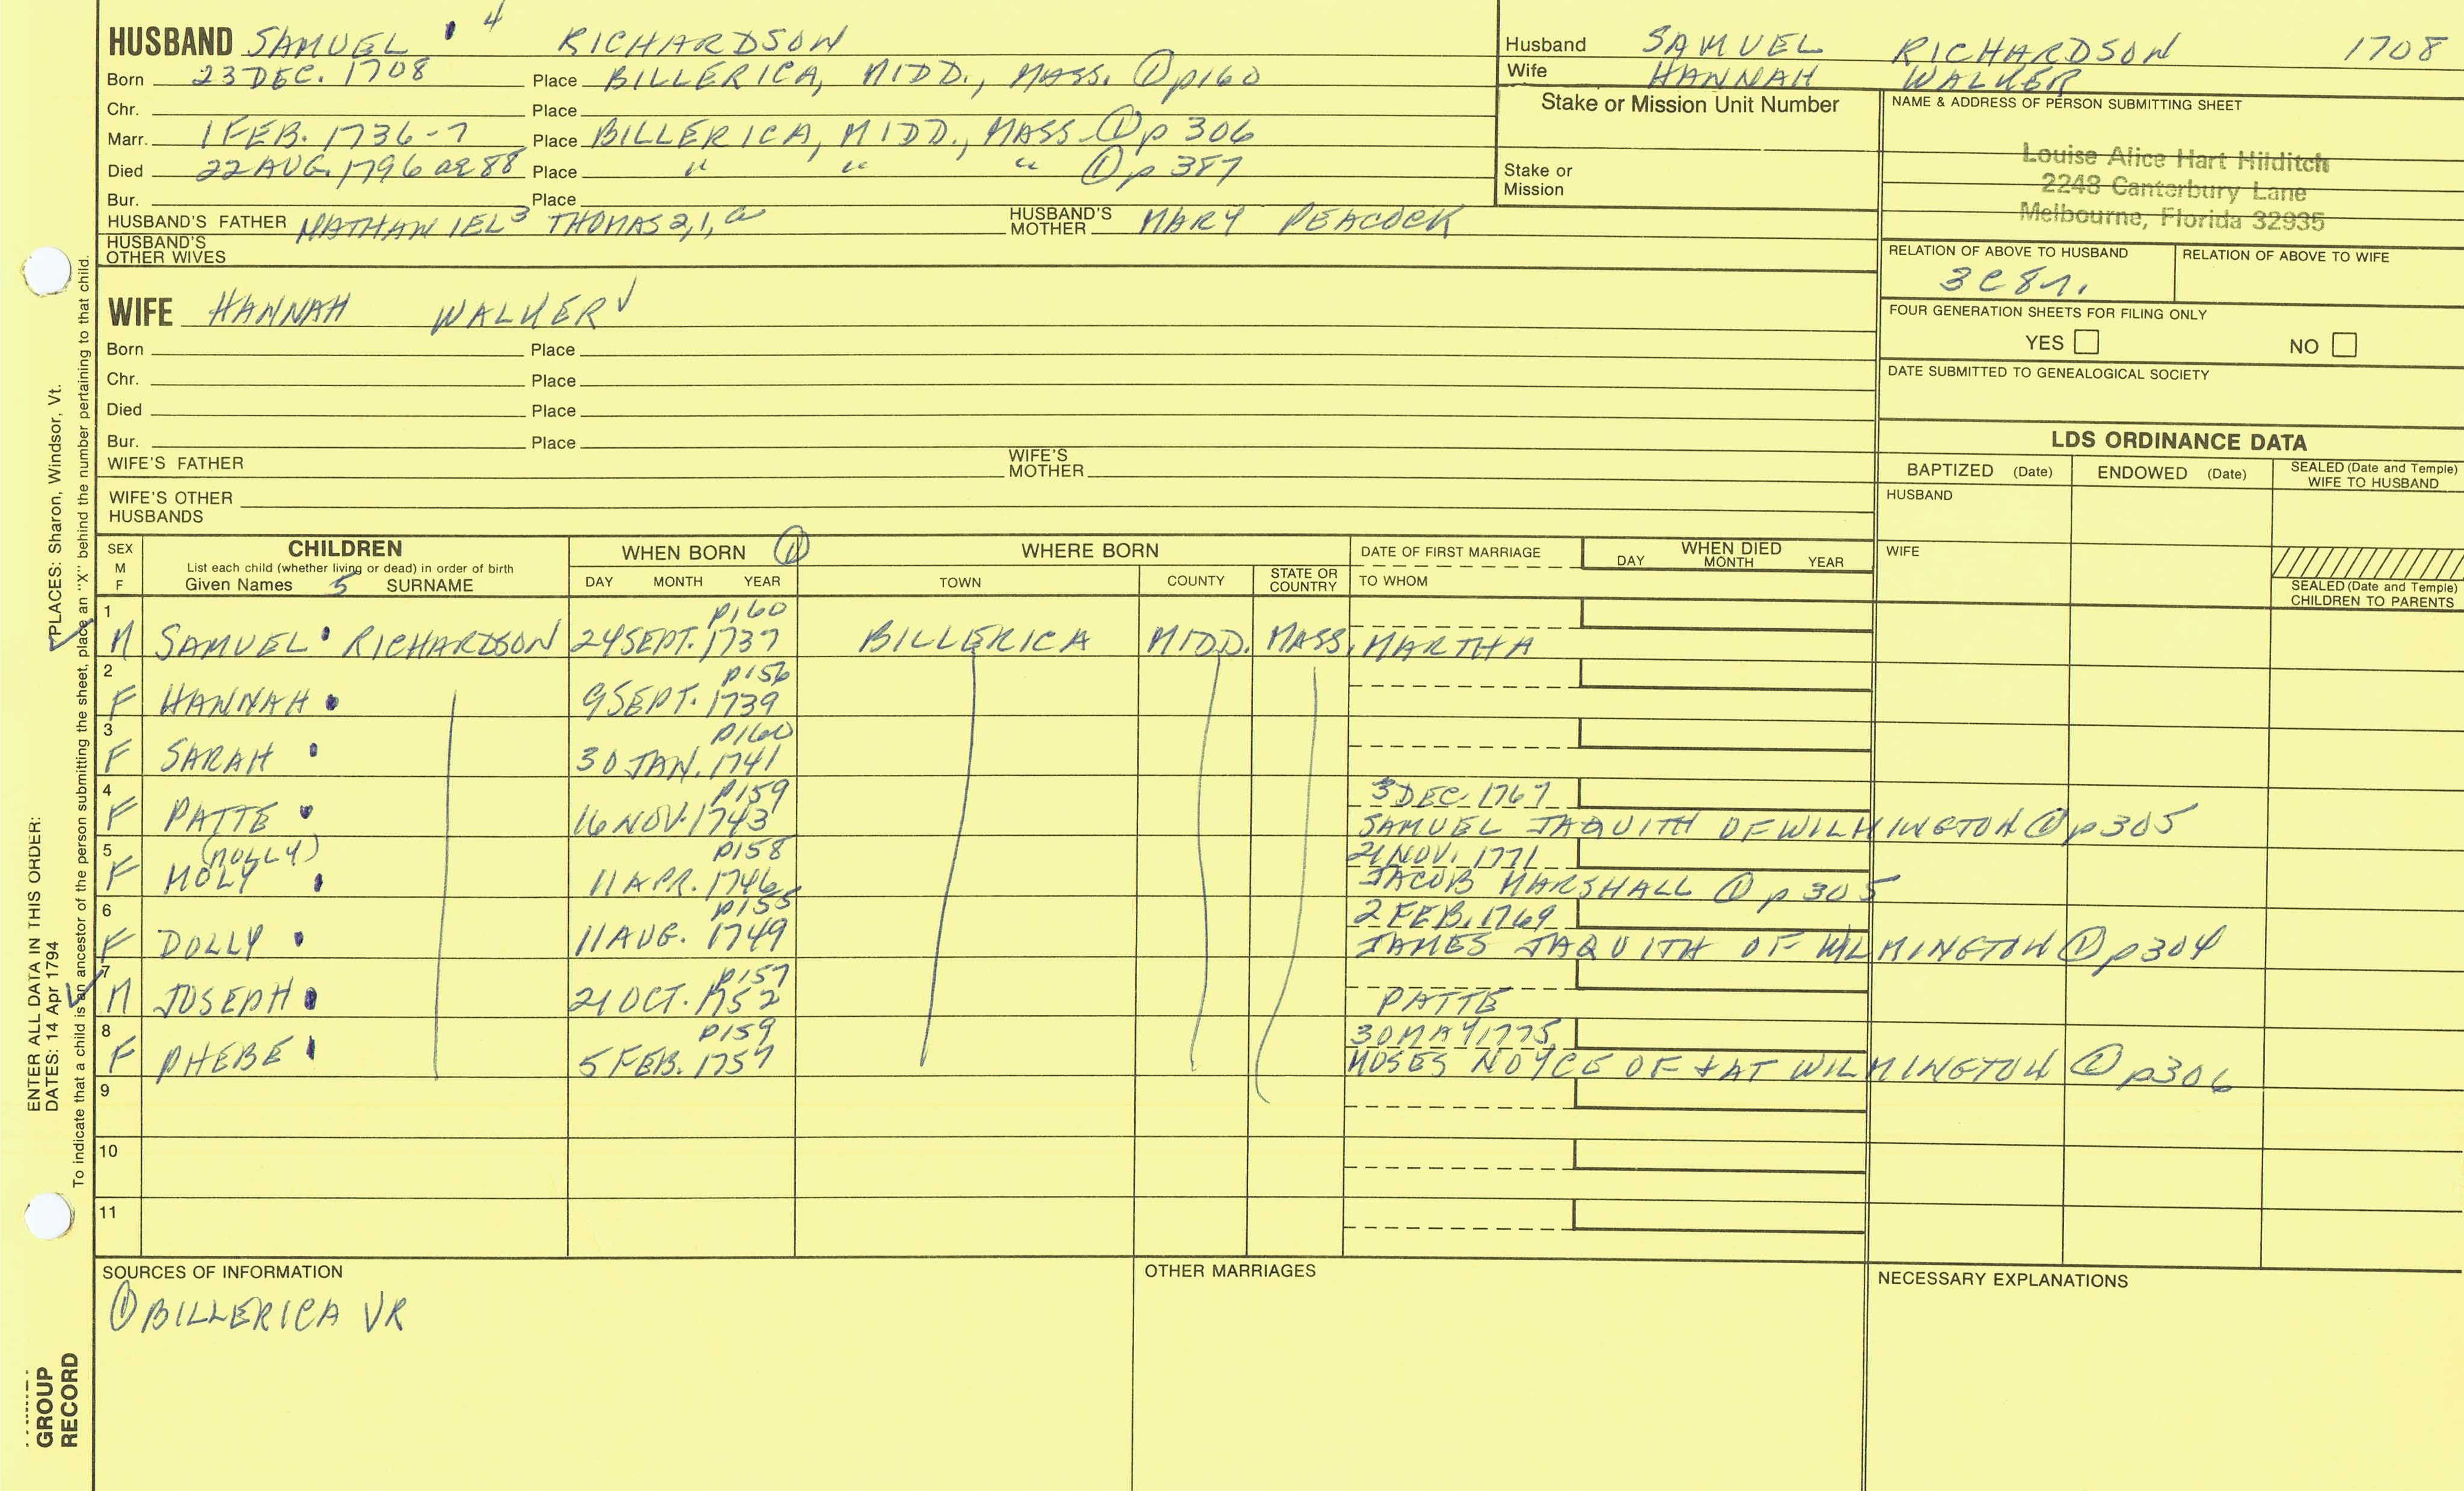 HUSBAND SAMUEL 4 RICHARDSON
Born 23 DEC. 1708 Place BILLERICA, MIDD., MASS. ① p160
Chr. Place
Marr. 1 FEB. 1736-7 Place BILLERICA, MIDD., MASS ① p 306
Died 22 AUG. 1796 ae 88 Place " " " ① p 387
Bur. Place
HUSBAND'S FATHER NATHANIEL 3 THOMAS 2, 1, a HUSBAND'S MOTHER MARY PEACOCK
HUSBAND'S OTHER WIVES
Husband SAMUEL RICHARDSON 1708
Wife HANNAH WALKER
Stake or Mission Unit Number
Stake or
Mission
NAME & ADDRESS OF PERSON SUBMITTING SHEET
Louise Alice Hart Hilditch
2248 Canterbury Lane
Melbourne, Florida 32935
RELATION OF ABOVE TO HUSBAND RELATION OF ABOVE TO WIFE
3C 8r.
FOUR GENERATION SHEETS FOR FILING ONLY
YES NO
DATE SUBMITTED TO GENEALOGICAL SOCIETY
WIFE HANNAH WALKER √
Born Place
Chr. Place
Died Place
Bur. Place
WIFE'S FATHER WIFE'S MOTHER
WIFE'S OTHER
HUSBANDS
LDS ORDINANCE DATA
BAPTIZED (Date) ENDOWED (Date) SEALED (Date and Temple) WIFE TO HUSBAND
HUSBAND
WIFE
SEALED (Date and Temple)
CHILDREN TO PARENTS
SEX M F CHILDREN WHEN BORN ① WHERE BORN DATE OF FIRST MARRIAGE WHEN DIED
List each child (whether living or dead) in order of birth
Given Names 5 SURNAME DAY MONTH YEAR TOWN COUNTY STATE OR COUNTRY TO WHOM DAY MONTH YEAR
1 p160
M SAMUEL RICHARDSON 24 SEPT. 1737 BILLERICA MIDD. MASS. MARTHA
2 p156
F HANNAH 9 SEPT. 1739
3 p160
F SARAH 30 JAN. 1741
4 p159 3 DEC. 1767
F PATTE 16 NOV. 1743 SAMUEL JAQUITH OF WILMINGTON ① p305
5 (MOLLY) p158 21 NOV. 1771
F MOLY 11 APR. 1746 JACOB MARSHALL ① p 305
6 p155 2 FEB. 1769
F DOLLY 11 AUG. 1749 JAMES JAQUITH OF WILMINGTON ① p304
7 p157
M JOSEPH 21 OCT. 1752 PATTE
8 p159 30 MAY 1775
F PHEBE 5 FEB. 1757 MOSES NOYCE OF + AT WILMINGTON ① p306
9
10
11
SOURCES OF INFORMATION OTHER MARRIAGES NECESSARY EXPLANATIONS
① BILLERICA VR
PLACES: Sharon, Windsor, Vt.
To indicate that a child is an ancestor of the person submitting the sheet, place an "X" behind the number pertaining to that child.
ENTER ALL DATA IN THIS ORDER:
DATES: 14 Apr 1794
GROUP
RECORD